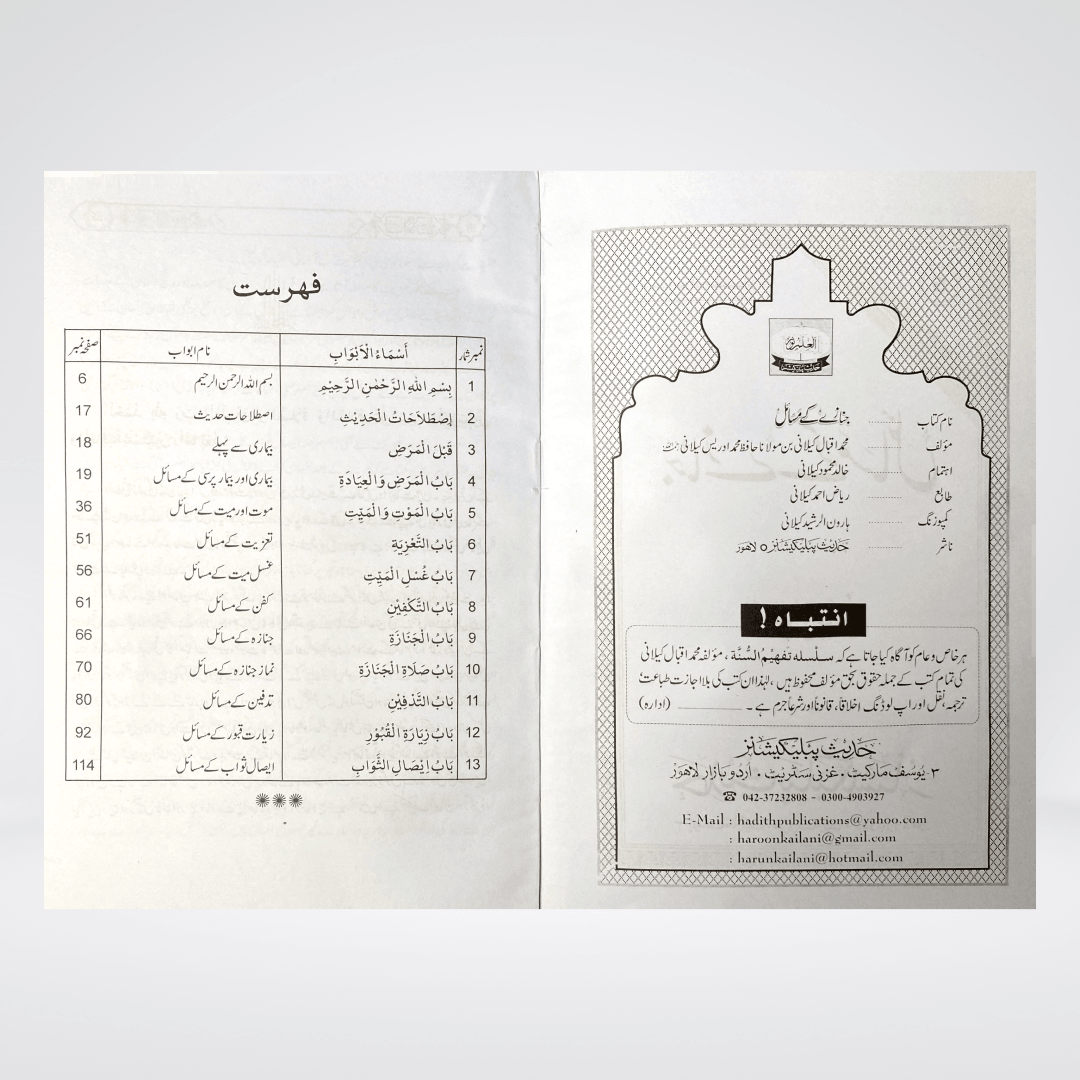 نام کتاب ........... جنازے کے مسائل
مؤلف ........... محمد اقبال کیلانی بن مولانا حافظ محمد ادریس کیلانی
اہتمام ........... خالد محمود کیلانی
طابع ........... ریاض احمد کیلانی
کمپوزنگ ........... ہارون الرشید کیلانی
ناشر ........... حدیث پبلیکیشنز ٥ لاہور
انتباہ !
ہر خاص و عام کو آگاہ کیا جاتا ہے کہ سلسلہ تفہیم السُّنَّة ، مؤلفہ محمد اقبال کیلانی
کی تمام کتب کے جملہ حقوق بحق مؤلف محفوظ ہیں ، لہٰذا ان کتب کی بلا اجازت طباعت
ترجمہ، نقل اور اپ لوڈنگ اخلاقاً، قانوناً اور شرعاً جرم ہے ۔ (ادارہ)
حدیث پبلیکیشنز
۳- یوسف مارکیٹ ، غزنی سٹریٹ ، اُردو بازار لاہور
☎ 042-37232808 - 0300-4903927
E-Mail : hadithpublications@yahoo.com
: haroonkailani@gmail.com
: harunkailani@hotmail.com
فہرست
نمبر شمار أَسْمَاءُ الْأَبْوَابِ نام ابواب صفحہ نمبر
1 بِسْمِ اللهِ الرَّحْمٰنِ الرَّحِيْمِ بسم اللہ الرحمن الرحیم 6
2 إِصْطَلَاحَاتُ الْحَدِيْثِ اصطلاحات حدیث 17
3 قَبْلَ الْمَرَضِ بیماری سے پہلے 18
4 بَابُ الْمَرَضِ وَالْعِيَادَةِ بیماری اور بیمار پرسی کے مسائل 19
5 بَابُ الْمَوْتِ وَالْمَيِّتِ موت اور میت کے مسائل 36
6 بَابُ التَّعْزِيَةِ تعزیت کے مسائل 51
7 بَابُ غُسْلِ الْمَيِّتِ غسل میت کے مسائل 56
8 بَابُ التَّكْفِيْنِ کفن کے مسائل 61
9 بَابُ الْجَنَازَةِ جنازہ کے مسائل 66
10 بَابُ صَلَاةِ الْجَنَازَةِ نماز جنازہ کے مسائل 70
11 بَابُ التَّدْفِيْنِ تدفین کے مسائل 80
12 بَابُ زِيَارَةِ الْقُبُوْرِ زیارت قبور کے مسائل 92
13 بَابُ اِيْصَالِ الثَّوَابِ ایصال ثواب کے مسائل 114